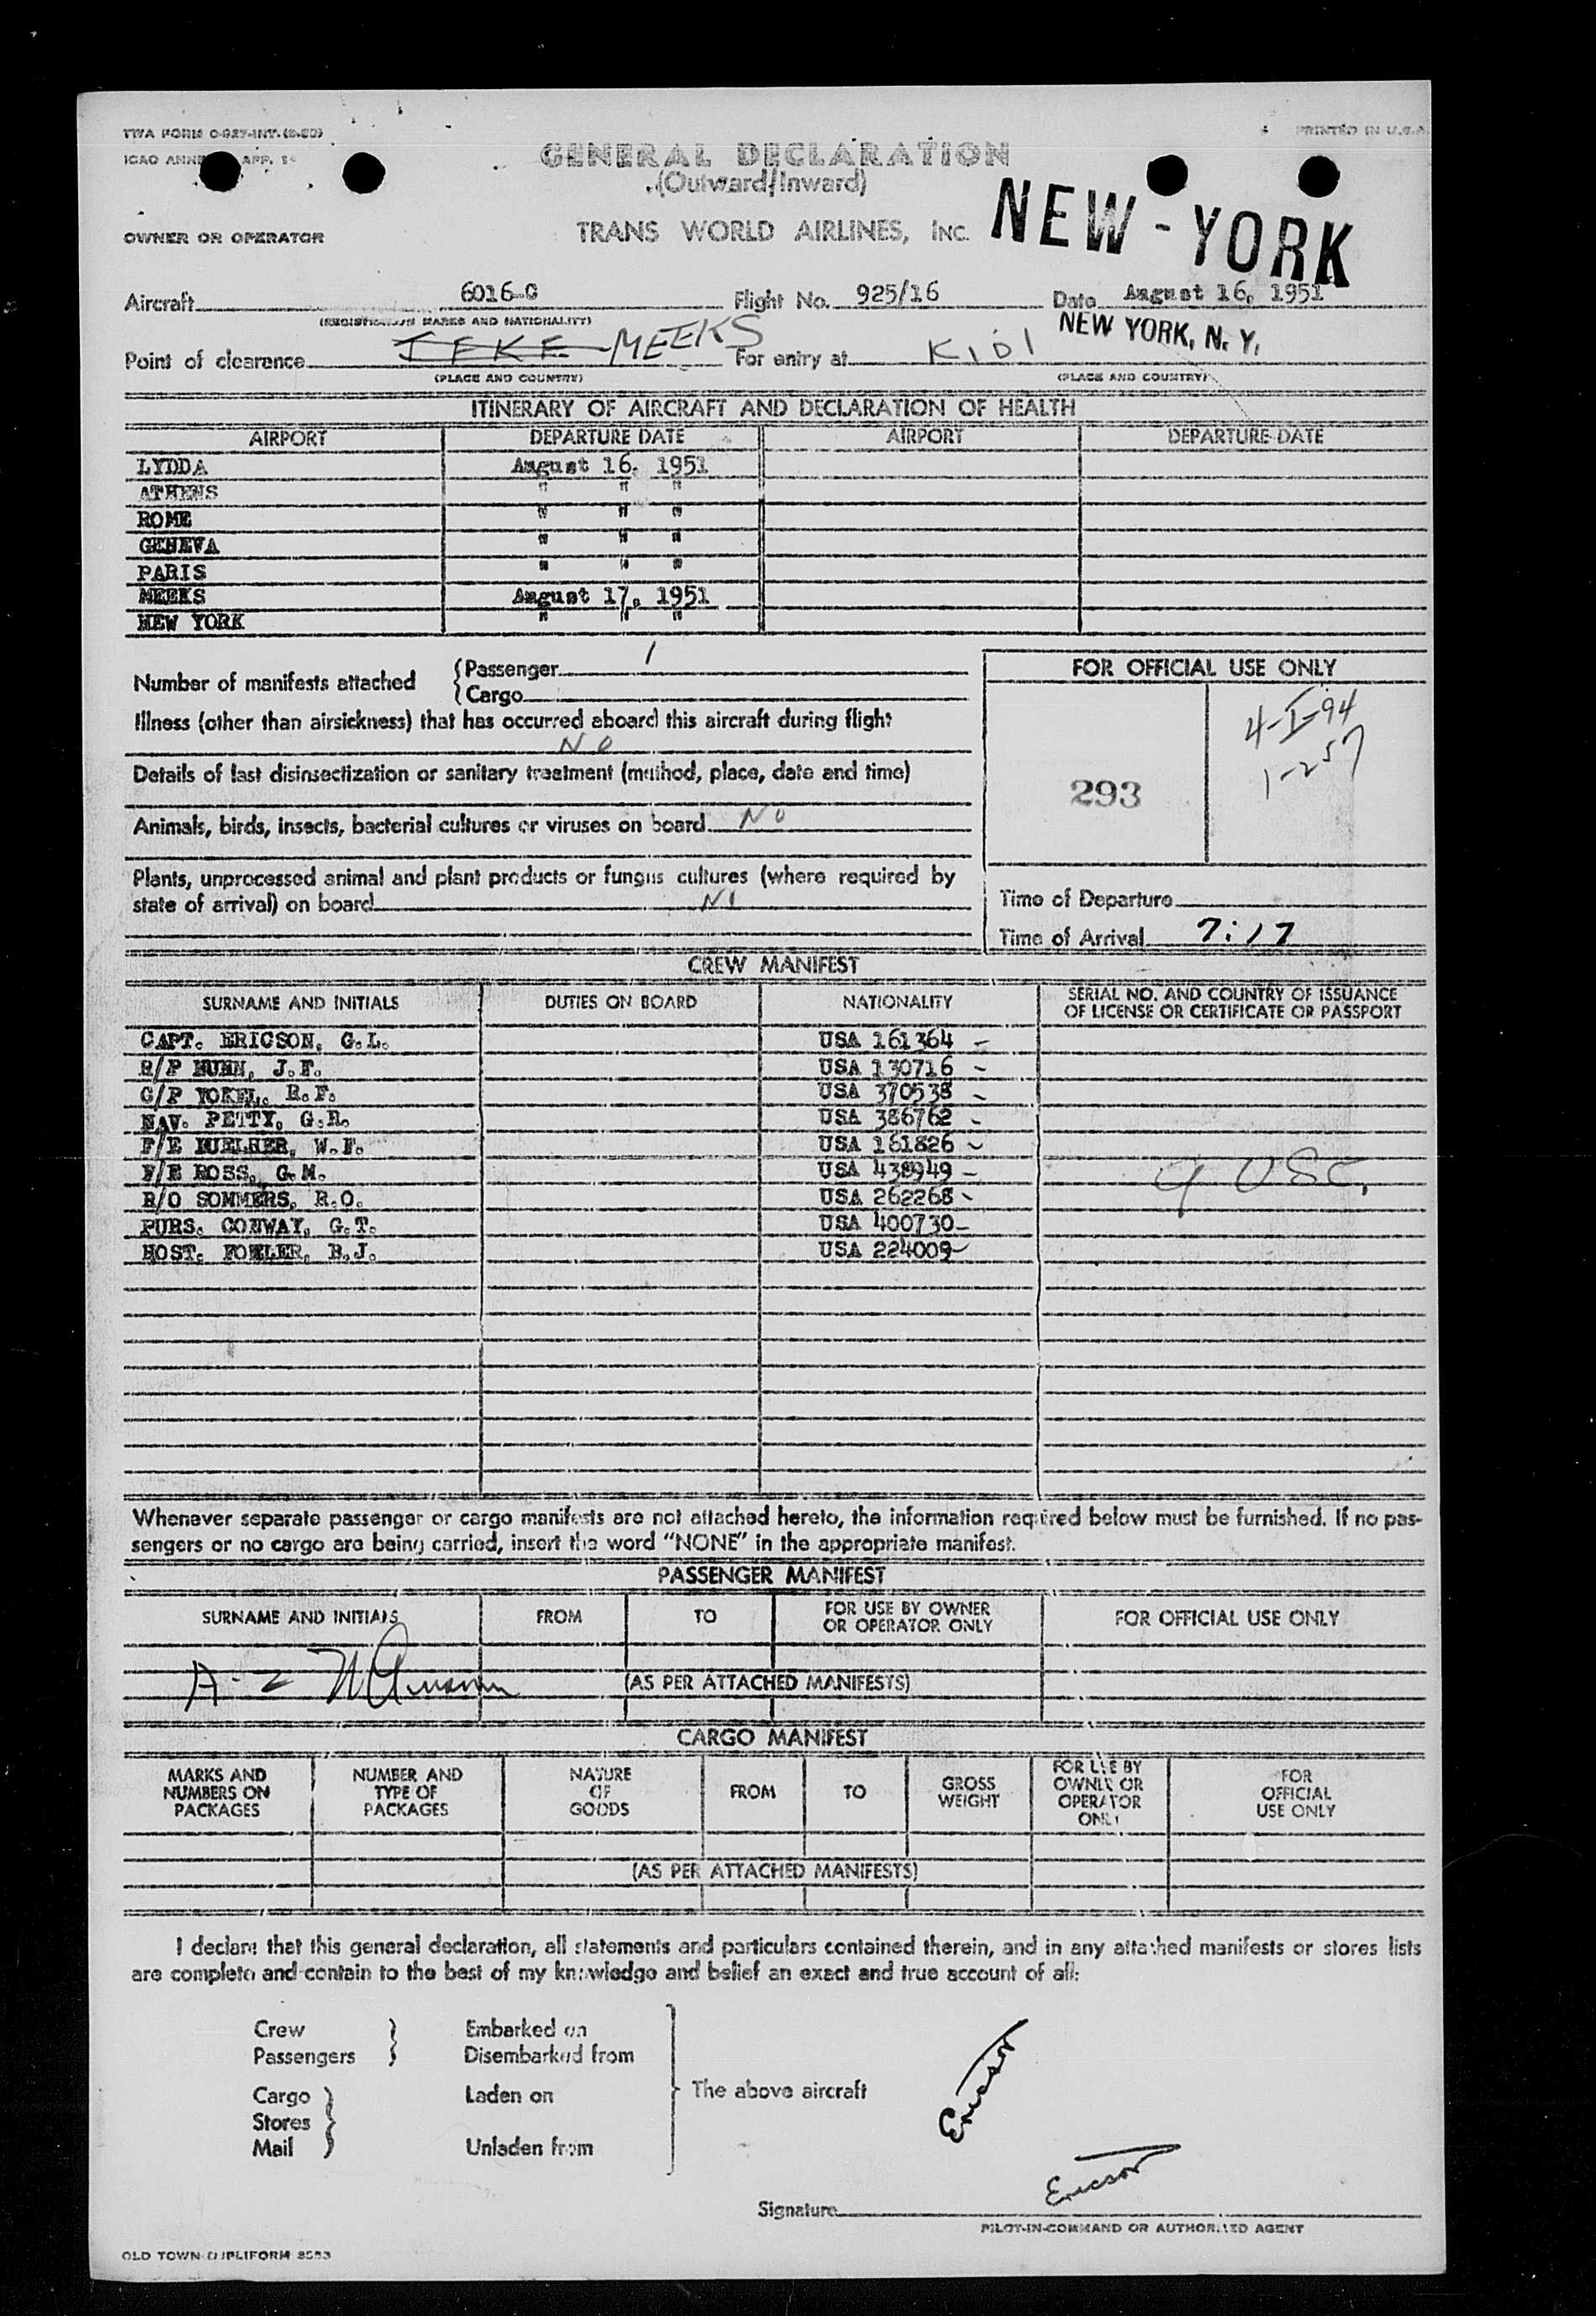 TWA FORM C-927-INT. (8-50)
PRINTED IN U.S.A.
ICAO ANNEX APP. 1
GENERAL DECLARATION
(Outward/Inward)
OWNER OR OPERATOR TRANS WORLD AIRLINES, INC.
NEW-YORK
Aircraft 6016-C Flight No. 925/16 Date August 16, 1951
(REGISTRATION MARKS AND NATIONALITY)
NEW YORK, N. Y.
Point of clearance MEEKS For entry at
(PLACE AND COUNTRY) (PLACE AND COUNTRY)
ITINERARY OF AIRCRAFT AND DECLARATION OF HEALTH
AIRPORT DEPARTURE DATE AIRPORT DEPARTURE DATE
LYDDA August 16, 1951
ATHENS " " "
ROME " " "
GENEVA " " "
PARIS " " "
MEEKS August 17, 1951
NEW YORK " " "
Number of manifests attached { Passenger 1
{ Cargo
FOR OFFICIAL USE ONLY
Illness (other than airsickness) that has occurred aboard this aircraft during flight
No
4-I-94
1-257
293
Details of last disinsectization or sanitary treatment (method, place, date and time)
Animals, birds, insects, bacterial cultures or viruses on board No
Plants, unprocessed animal and plant products or fungus cultures (where required by
state of arrival) on board No
Time of Departure
Time of Arrival 7:17
CREW MANIFEST
SURNAME AND INITIALS DUTIES ON BOARD NATIONALITY SERIAL NO. AND COUNTRY OF ISSUANCE
OF LICENSE OR CERTIFICATE OR PASSPORT
CAPT. ERICSON, G.L. USA 161364
J.F. USA 130716
YOKEL, R.F. USA 370538
NAV. PETTY, G.R. USA 386762
F/E W.F. USA 161826
F/E ROSS, G.M. USA 438949
R/O SOMMERS, R.O. USA 262268
PURS. CONWAY, G.T. USA 400730
HOST. FOWLER, B.J. USA 224009
9 USC.
Whenever separate passenger or cargo manifests are not attached hereto, the information required below must be furnished. If no pas-
sengers or no cargo are being carried, insert the word "NONE" in the appropriate manifest.
PASSENGER MANIFEST
SURNAME AND INITIALS FROM TO FOR USE BY OWNER
OR OPERATOR ONLY FOR OFFICIAL USE ONLY
(AS PER ATTACHED MANIFESTS)
CARGO MANIFEST
MARKS AND
NUMBERS ON
PACKAGES
NUMBER AND
TYPE OF
PACKAGES
NATURE
OF
GOODS
FROM
TO
GROSS
WEIGHT
FOR USE BY
OWNER OR
OPERATOR
ONLY
FOR
OFFICIAL
USE ONLY
(AS PER ATTACHED MANIFESTS)
I declare that this general declaration, all statements and particulars contained therein, and in any attached manifests or stores lists
are complete and contain to the best of my knowledge and belief an exact and true account of all:
Crew } Embarked on
Passengers } Disembarked from
Cargo } Laden on The above aircraft
Stores
Mail } Unladen from
Ericson
Ericson
Signature
PILOT-IN-COMMAND OR AUTHORIZED AGENT
OLD TOWN DUPLIFORM 8553